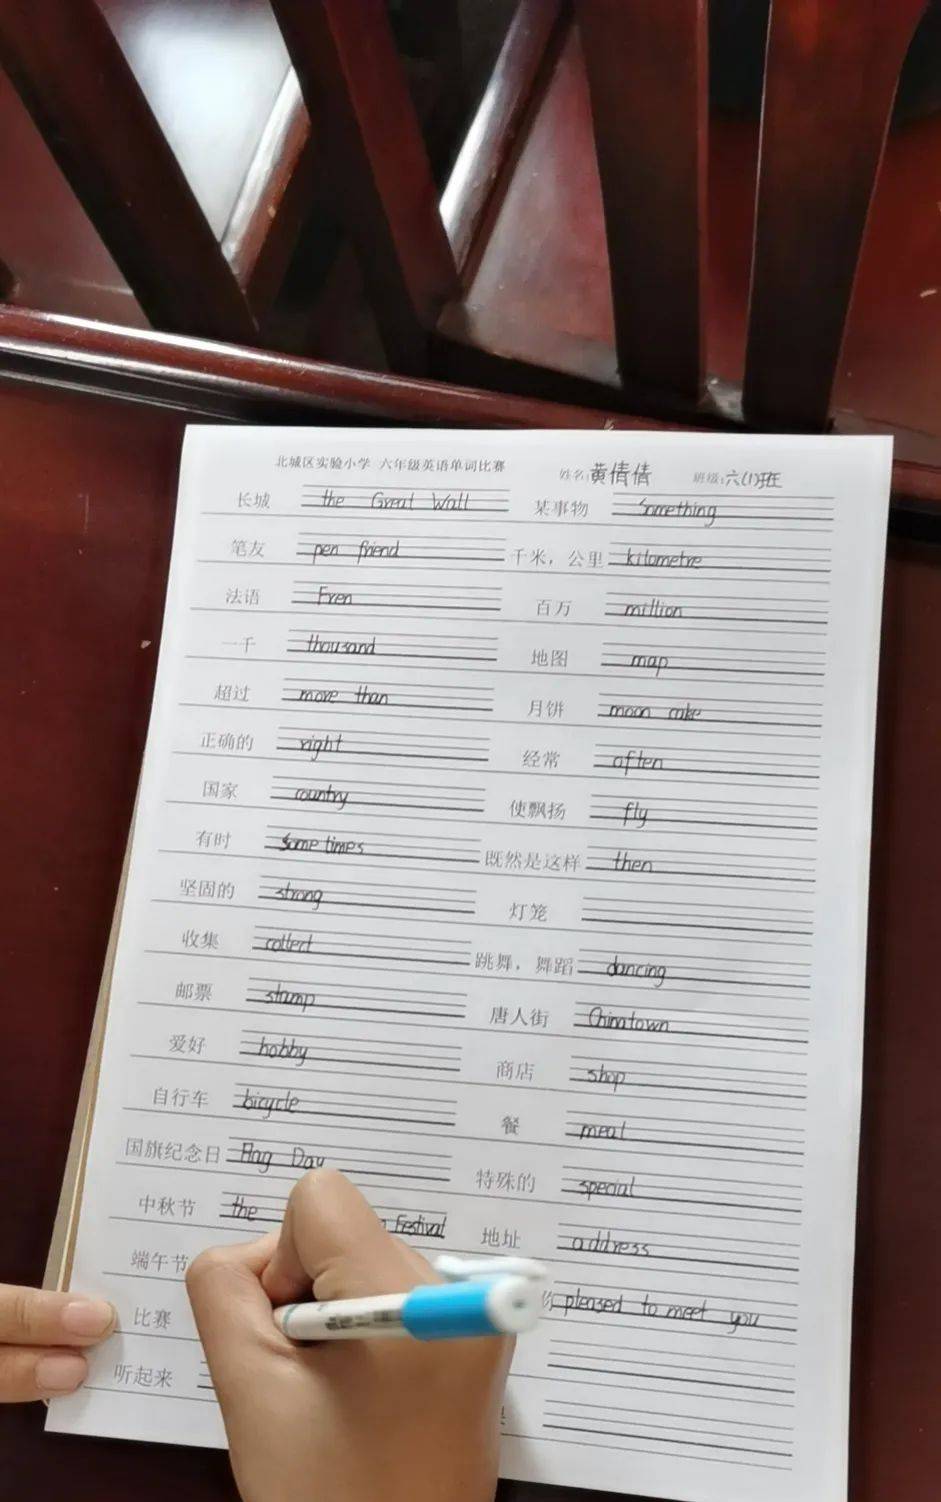 北城区实验小学 六年级英语单词比赛 姓名:黄倩倩 班级:六(1)班
长城 the Great Wall 某事物 Something
笔友 pen friend 千米，公里 kilometre
法语 Fren 百万 million
一千 thousand 地图 map
超过 more than 月饼 moon cake
正确的 right 经常 often
国家 country 使飘扬 fly
有时 Sometimes 既然是这样 then
坚固的 strong 灯笼
收集 collect 跳舞，舞蹈 dancing
邮票 stamp 唐人街 Chinatown
爱好 hobby 商店 shop
自行车 bicycle 餐 meal
国旗纪念日 Flag Day 特殊的 special
中秋节 the Festival 地址 address
端午节 你 pleased to meet you
比赛
听起来